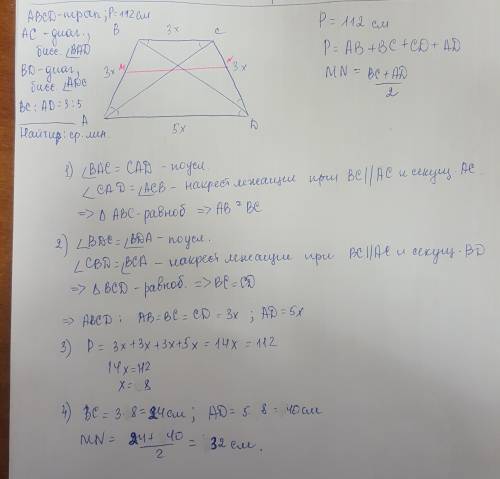 ABCD-трап; P=112см
AC-диаг.,
бисс ∠BAD
BD-диаг,
бисс. ∠ADC
BC:AD=3:5
Найти: ср. лин.
B 3x C
M N
3x 3x
A 5x D
P = 112 см
P = AB + BC + CD + AD
MN = BC + AD / 2
1) ∠BAC = CAD - по усл.
∠CAD = ∠ACB - накрест лежащие при BC//AC и секущ. AC.
=> △ABC-равноб => AB = BC
2) ∠BDC = ∠BDA - по усл.
∠CBD = ∠BCA - накрест лежащие при BC//AC и секущ. BD
=> △BCD - равноб. => BC = CD
=> ABCD: AB = BC = CD = 3x ; AD = 5x
3) P = 3x + 3x + 3x + 5x = 14x = 112
14x = 112
x = 8
4) BC = 3·8 = 24 см; AD = 5·8 = 40см
MN = 24 + 40 / 2 = 32 см.